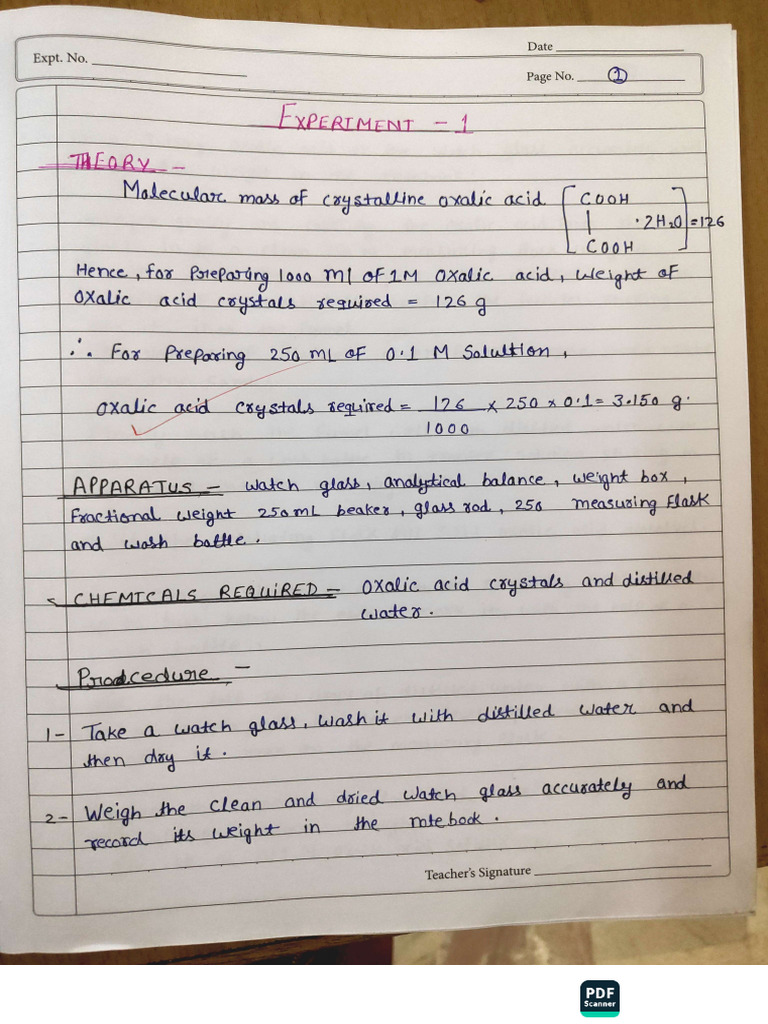 Expt. No.
Date
Page No. 1
EXPERIMENT - 1
THEORY -
Molecular mass of crystalline oxalic acid [COOH | COOH · 2H2O] = 126
Hence, for Preparing 1000 Ml of 1M oxalic acid, weight of
oxalic acid crystals required = 126 g
∴ For Preparing 250 mL of 0.1 M Solultion,
oxalic acid crystals required = 126/1000 x 250 x 0.1 = 3.150 g.
APPARATUS - watch glass, analytical balance, weight box,
Fractional weight 250 mL beaker, glass rod, 250 measuring Flask
and wash bottle.
CHEMICALS REQUIRED = oxalic acid crystals and distilled
water.
Prodcedure -
1- Take a watch glass, wash it with distilled water and
then dry it.
2- Weigh the clean and dried watch glass accurately and
record its weight in the notebook.
Teacher's Signature
PDF
Scanner